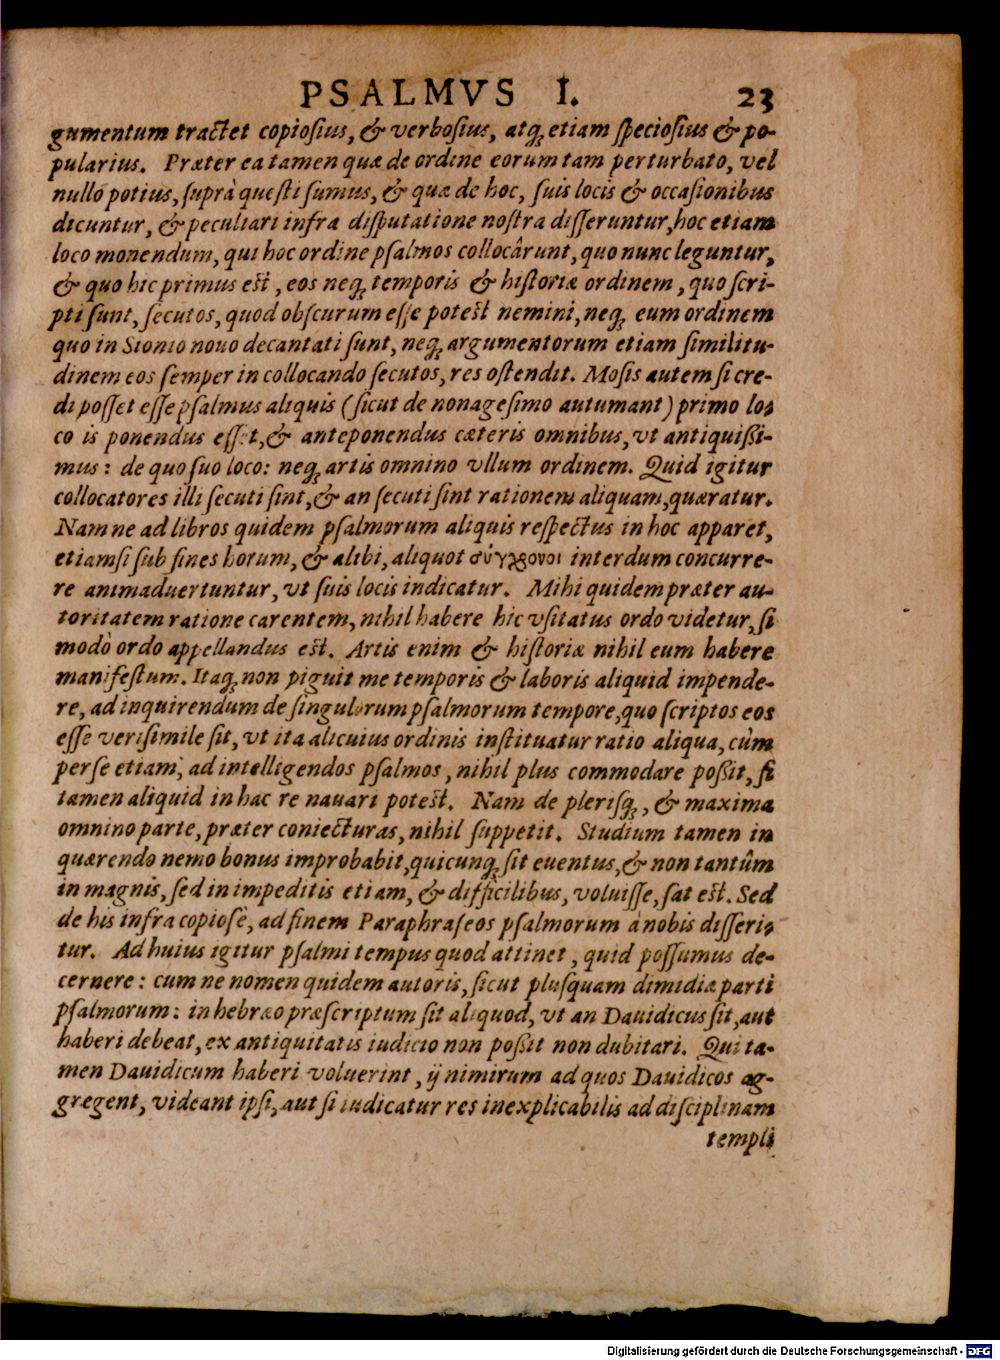 PSALMVS I. 23
gumentum tractet copiosius, & verbosius, atq; etiam speciosius & po-
pularius. Præter ea tamen quæ de ordine eorum tam perturbato, vel
nullo potius, suprà questi sumus, & quæ de hoc, suis locis & occasionibus
dicuntur, & peculiari infra disputatione nostra disseruntur, hoc etiam
loco monendum, qui hoc ordine psalmos collocârunt, quo nunc leguntur,
& quo hic primus est, eos neq; temporis & historiæ ordinem, quo scri-
pti sunt, secutos, quod obscurum esse potest nemini, neq; eum ordinem
quo in Sionio nouo decantati sunt, neq; argumentorum etiam similitu-
dinem eos semper in collocando secutos, res ostendit. Mosis autem si cre-
di posset esse psalmus aliquis (sicut de nonagesimo autumant) primo lo-
co is ponendus esset, & anteponendus cæteris omnibus, vt antiquißi-
mus: de quo suo loco: neq; artis omnino vllum ordinem. Quid igitur
collocatores illi secuti sint, & an secuti sint rationem aliquam, quæratur.
Nam ne ad libros quidem psalmorum aliquis respectus in hoc apparet,
etiamsi sub fines horum, & alibi, aliquot σύγχρονοι interdum concurre-
re animaduertuntur, vt suis locis indicatur. Mihi quidem præter au-
toritatem ratione carentem, nihil habere hic vsitatus ordo videtur, si
modò ordo appellandus est. Artis enim & historiæ nihil eum habere
manifestum. Itaq; non piguit me temporis & laboris aliquid impende-
re, ad inquirendum de singulorum psalmorum tempore, quo scriptos eos
esse verisimile sit, vt ita alicuius ordinis instituatur ratio aliqua, cùm
per se etiam, ad intelligendos psalmos, nihil plus commodare poßit, si
tamen aliquid in hac re nauari potest. Nam de plerisq;, & maxima
omnino parte, præter coniecturas, nihil suppetit. Studium tamen in
quærendo nemo bonus improbabit, quicunq; sit euentus, & non tantûm
in magnis, sed in impeditis etiam, & difficilibus, voluisse, sat est. Sed
de his infra copiosè, ad finem Paraphraseos psalmorum à nobis disseri-
tur. Ad huius igitur psalmi tempus quod attinet, quid possumus de-
cernere: cum ne nomen quidem autoris, sicut plusquam dimidiæ parti
psalmorum: in hebræo præscriptum sit aliquod, vt an Dauidicus sit, aut
haberi debeat, ex antiquitatis iudicio non poßit non dubitari. Qui ta-
men Dauidicum haberi voluerint, ij nimirum ad quos Dauidicos ag-
gregent, videant ipsi, aut si iudicatur res inexplicabilis ad disciplinam
templi
Digitalisierung gefördert durch die Deutsche Forschungsgemeinschaft - DFG